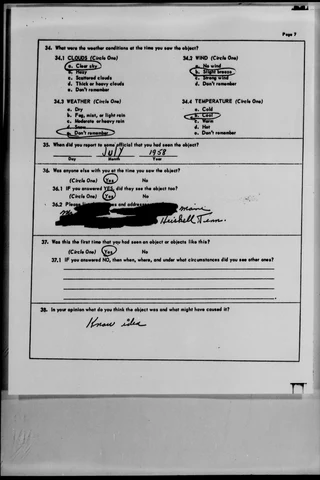 Page 7
34. What were the weather conditions at the time you saw the object?
34.1 CLOUDS (Circle One) 34.2 WIND (Circle One)
a. Clear sky a. No wind
b. Hazy b. Slight breeze
c. Scattered clouds c. Strong wind
d. Thick or heavy clouds d. Don't remember
e. Don't remember
34.3 WEATHER (Circle One) 34.4 TEMPERATURE (Circle One)
a. Dry a. Cold
b. Fog, mist, or light rain b. Cool
c. Moderate or heavy rain c. Warm
d. Snow d. Hot
e. Don't remember e. Don't remember
35. When did you report to some official that you had seen the object?
July 1958
Day Month Year
36. Was anyone else with you at the time you saw the object?
(Circle One) Yes No
36.1 IF you answered YES, did they see the object too?
(Circle One) Yes No
36.2 Please and addresses
37. Was this the first time that you had seen an object or objects like this?
(Circle One) Yes No
37.1 IF you answered NO, then when, where, and under what circumstances did you see other ones?
38. In your opinion what do you think the object was and what might have caused it?
Know idea